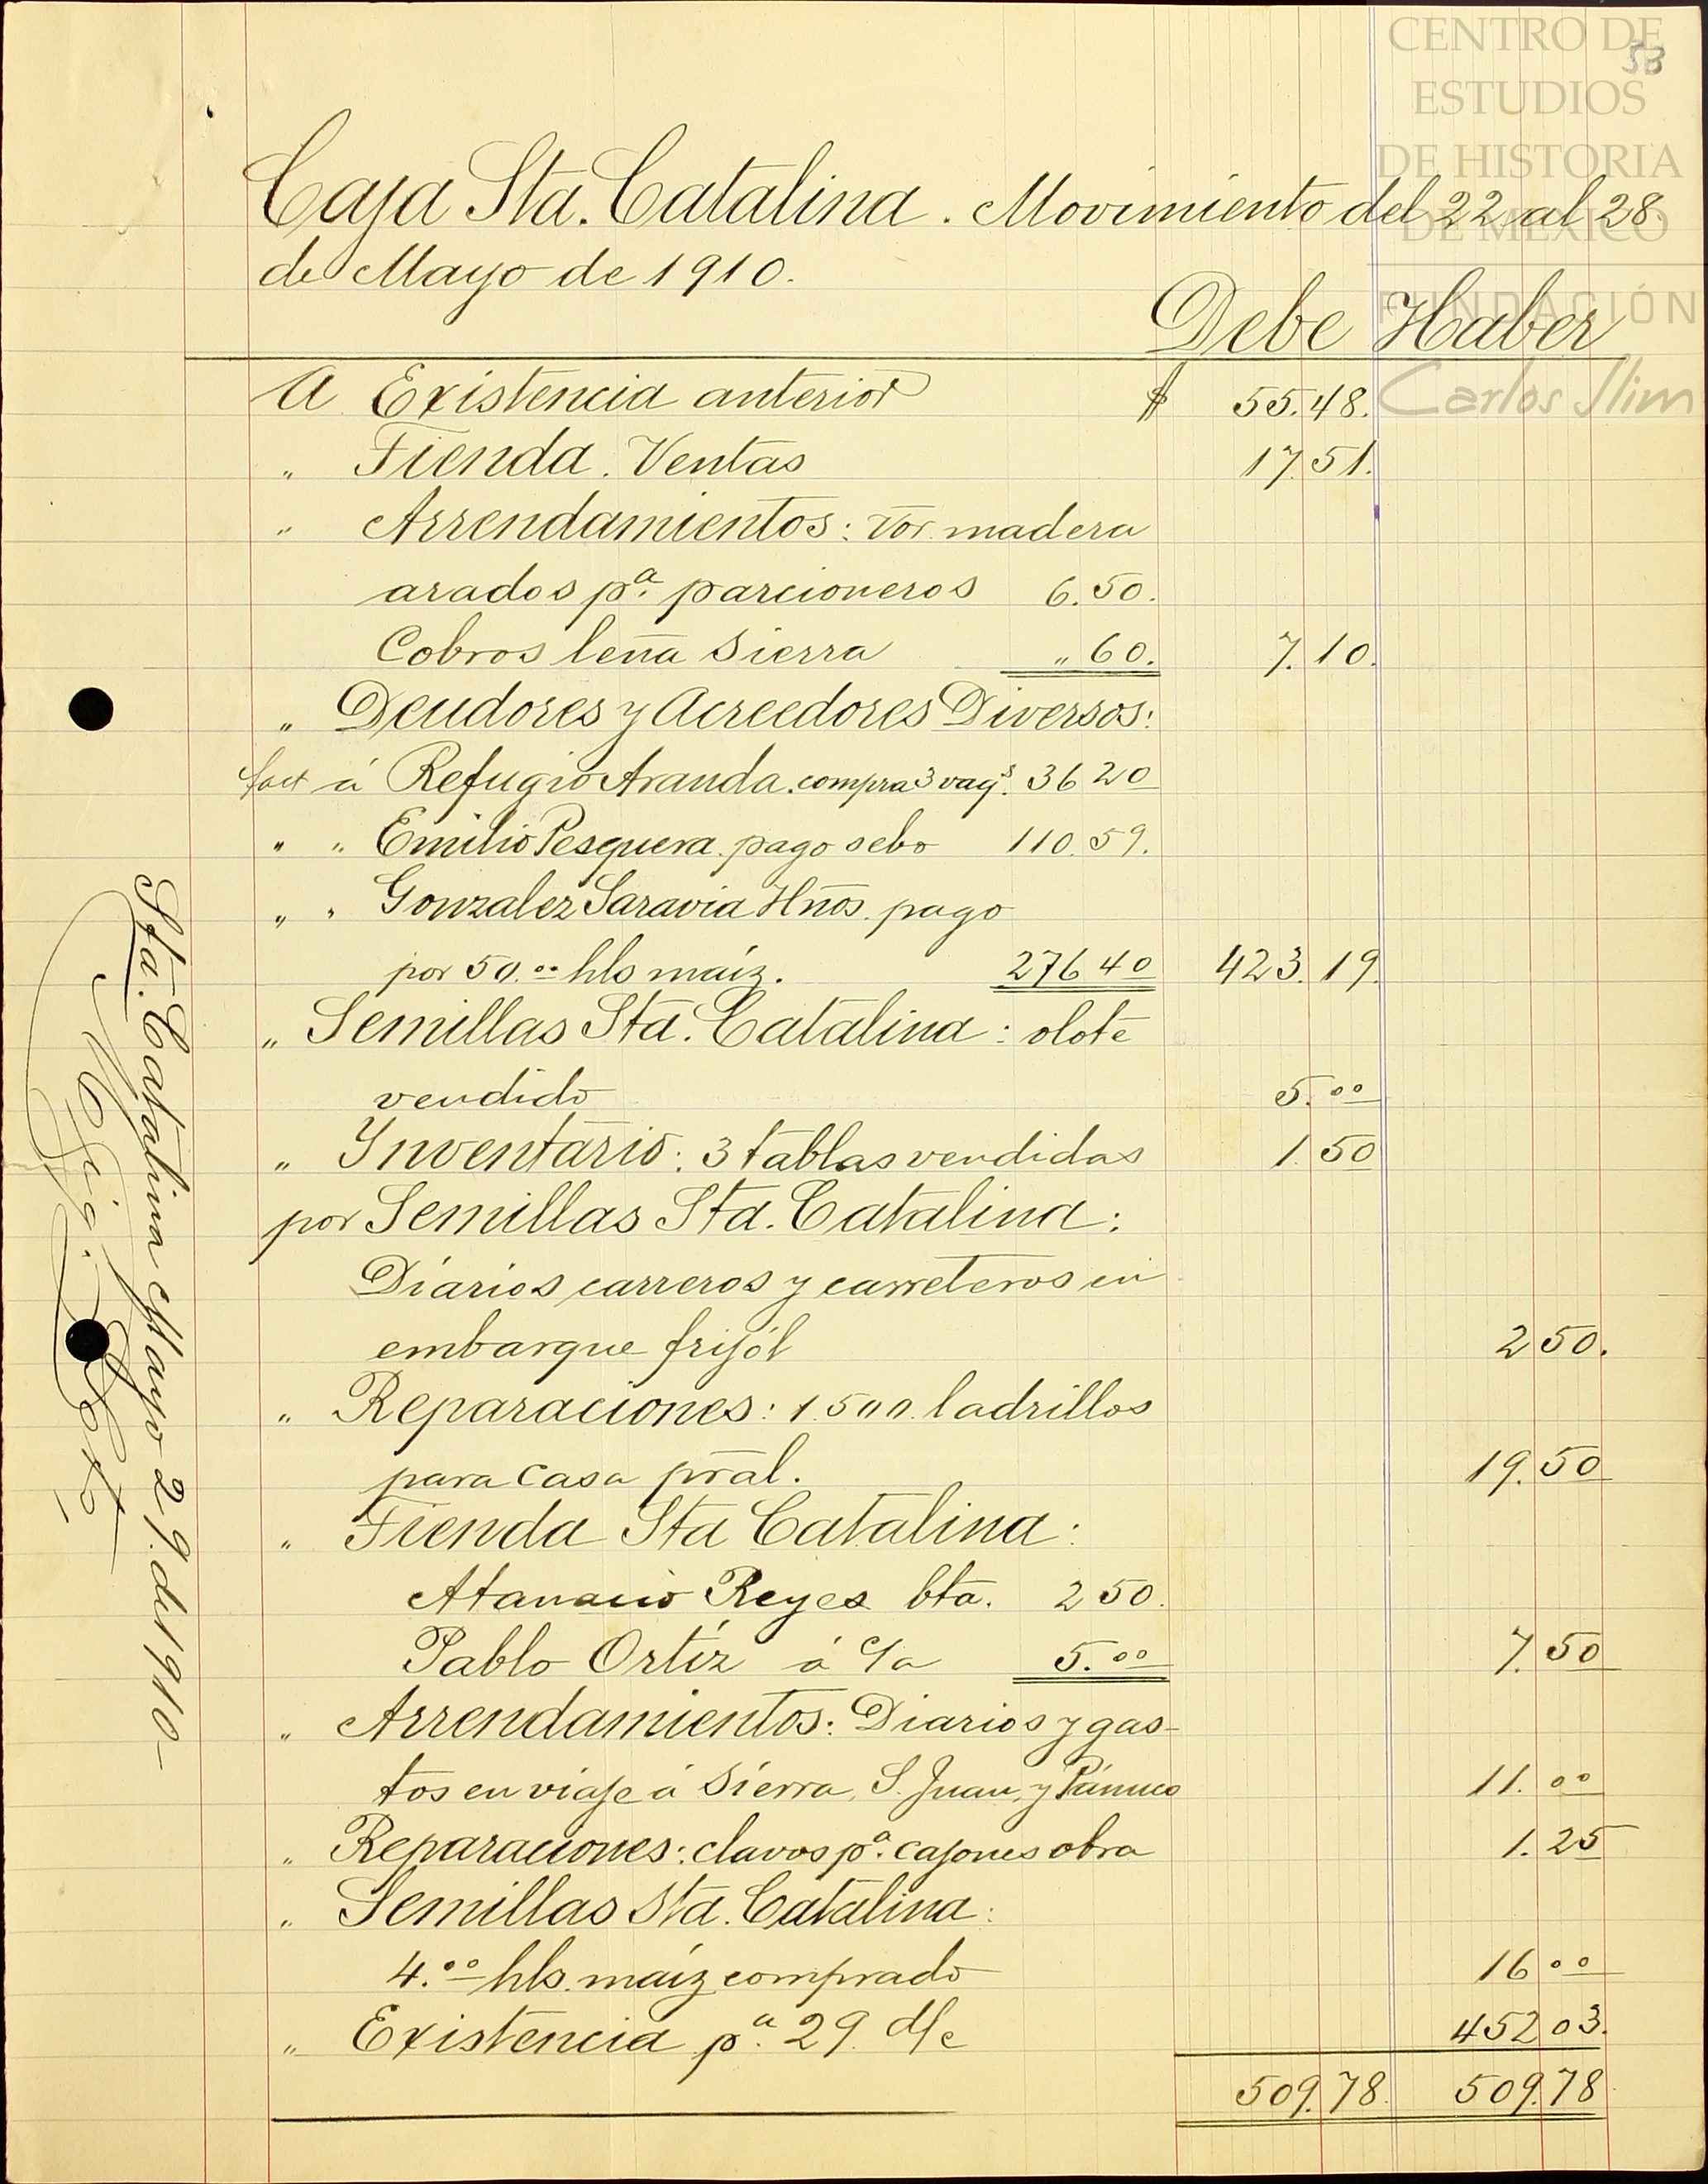 CENTRO DE
ESTUDIOS
DE HISTORIA
DE MÉXICO
FUNDACIÓN
Carlos Slim
53
Caja Sta. Catalina. Movimiento del 22 al 28.
de Mayo de 1910.
Debe Haber
A Existencia anterior $ 55.48.
" Tienda. Ventas 17.51.
" Arrendamientos: Vor. madera
arados pª. parcioneros 6.50.
Cobros leña Sierra " 60. 7.10.
" Deudores y Acreedores Diversos:
á Refugio Aranda. compra 3 vagˢ. 36 20
" " Emilio Pesquera. pago sebo 110.59.
" " Gonzalez Saravia Hños. pago
por 50.⁰⁰ hls maíz. 276 40 423.19.
" Semillas Sta. Catalina: olote
vendido 5.⁰⁰
" Inventario: 3 tablas vendidas 1.50
por Semillas Sta. Catalina:
Diarios carreros y carreteros en
embarque frijól 2 50.
" Reparaciones: 1.500. ladrillos
para Casa pral. 19.50
" Tienda Sta Catalina:
Atanacio Reyes bta. 2 50.
Pablo Ortíz á c/a 5.⁰⁰ 7.50
" Arrendamientos: Diarios y gas-
tos en viaje á Sierra, S. Juan, y Pánuco 11.⁰⁰
" Reparaciones: clavos pª. cajones obra 1.25
" Semillas Sta. Catalina:
4.⁰⁰ hls. maíz comprado 16 ⁰⁰
" Existencia pª. 29. 452 03.
509.78. 509.78
Sta. Catalina Mayo 29. de 1910-